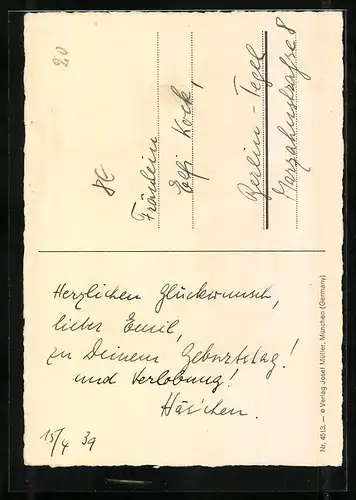 20
Fräulein
Elfi Kock,
Berlin - Tegel
Marzahnstraße 8
Herzlichen Glückwunsch,
lieber Emil,
zu Deinem Geburtstag!
und Verlobung!
Häs'chen.
15/4 39
Nr. 4513. — © Verlag Josef Müller, München (Germany)